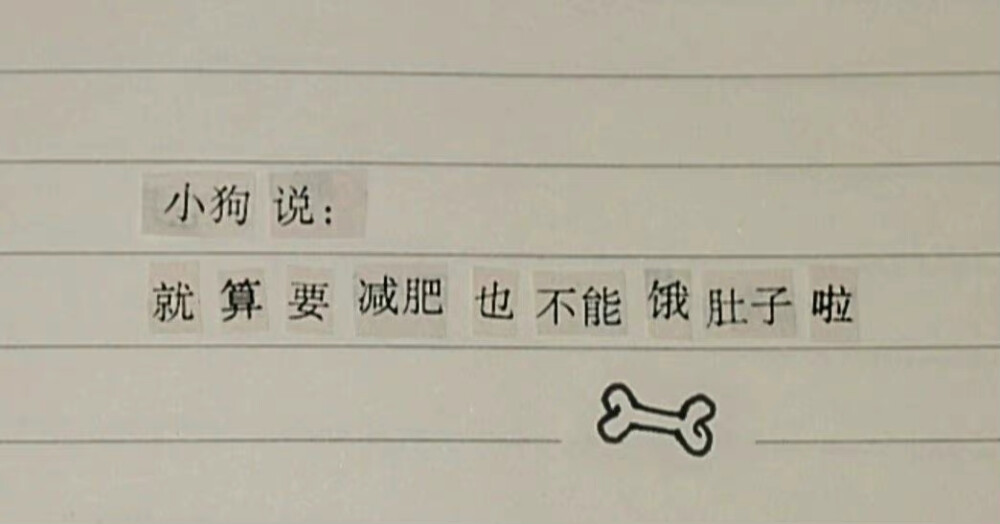 小狗说:
就算要减肥也不能饿肚子啦